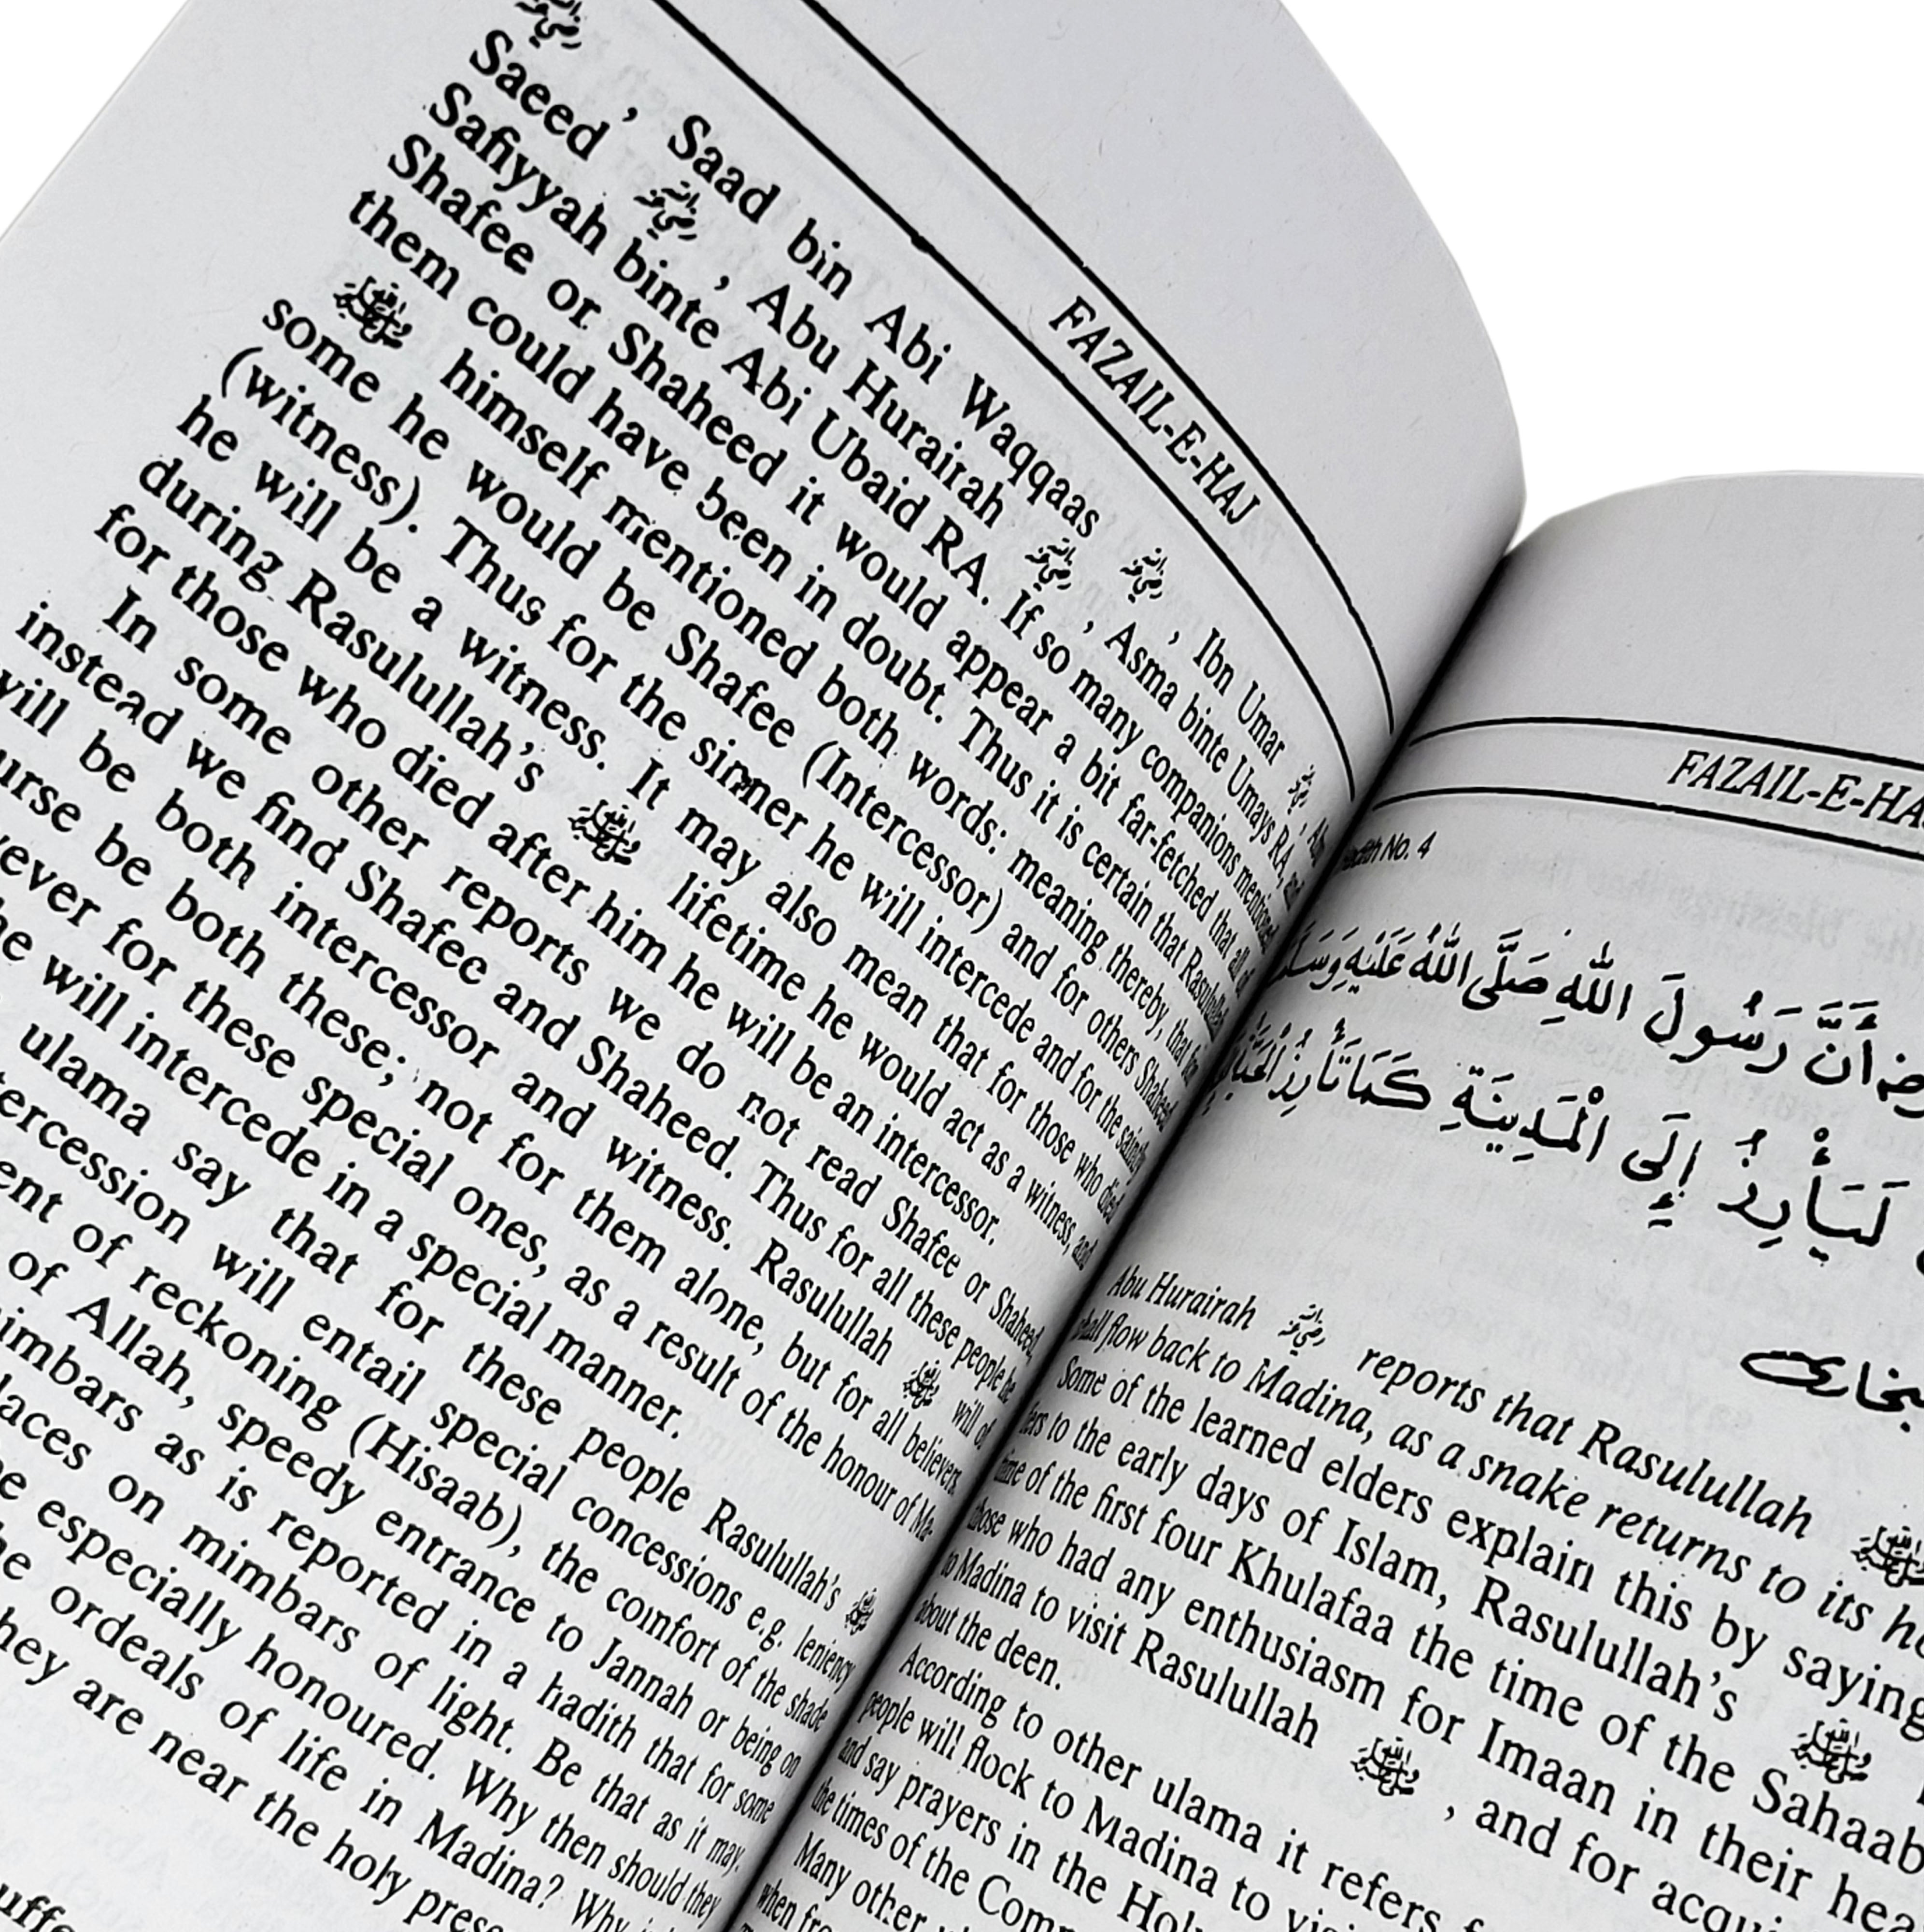 FAZAIL-E-HAJ
Saeed ﷺ, Saad bin Abi Waqqaas, Ibn Umar
Safiyyah binte Abi Ubaid RA. If so many companions mentioned
Shafee or Shaheed it would appear a bit far-fetched that all of
them could have been in doubt. Thus it is certain that Rasulullah
ﷺ himself mentioned both words: meaning thereby, that for
some he would be Shafee (Intercessor) and for others Shaheed
(witness). Thus for the sinner he will intercede and for the saintly
he will be a witness. It may also mean that for those who died
during Rasulullah's ﷺ lifetime he would act as a witness, and
for those who died after him he will be an intercessor.
In some other reports we do not read Shafee or Shaheed,
instead we find Shafee and Shaheed. Thus for all these people he
will be both intercessor and witness. Rasulullah ﷺ will of
be both these; not for them alone, but for all believers,
for these special ones, as a result of the honour of Ma-
he will intercede in a special manner.
ulama say that for these people Rasulullah's ﷺ
will entail special concessions e.g. leniency
of reckoning (Hisaab), the comfort of the shade
of Allah, speedy entrance to Jannah or being on
as is reported in a hadith that for some
on mimbars of light. Be that as it may,
especially honoured. Why then should they
ordeals of life in Madina? Why
they are near the holy
FAZAIL-E-HA
No. 4
أَنَّ رَسُولَ اللهِ صَلَّى اللهُ عَلَيْهِ وَسَلَّ
لَيَأْرِزُ إِلَى الْمَدِيْنَةِ كَمَا تَأْرِزُ
Abu Hurairah reports that Rasulullah ﷺ
shall flow back to Madina, as a snake returns to its
Some of the learned elders explain this by saying
to the early days of Islam, Rasulullah's ﷺ
time of the first four Khulafaa the time of the Sahaab
those who had any enthusiasm for Imaan in their
to Madina to visit Rasulullah ﷺ, and for
about the deen.
According to other ulama it refers
people will flock to Madina to
and say prayers in the
the times of the
Many other
when